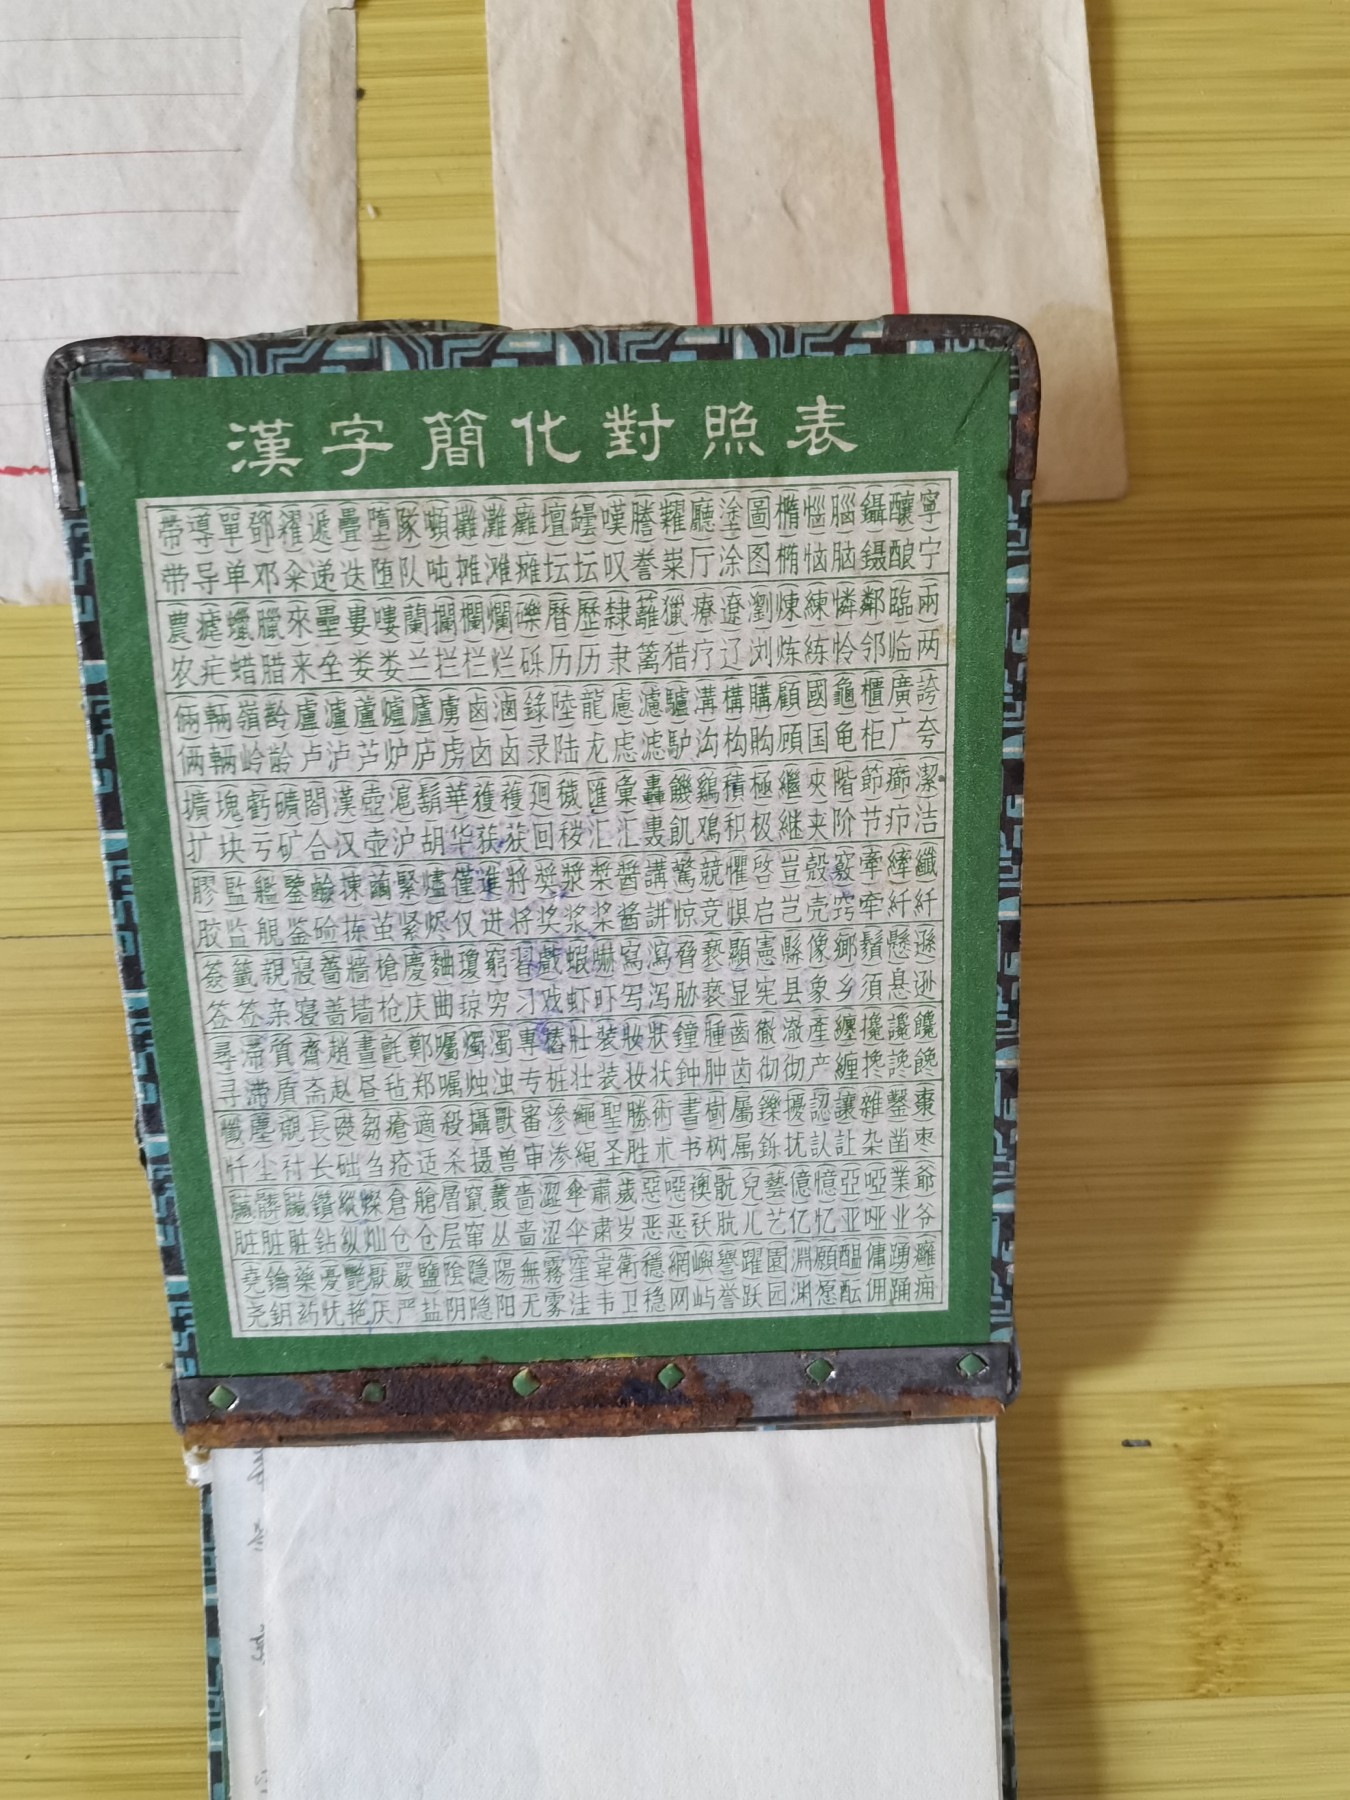 漢字簡化對照表
帶導單鄧糴遞疊墮隊頓攤灘癱壇罎嘆謄糶廳塗圖橢惱腦鑷釀寧
带导单邓籴递迭堕队吨摊滩瘫坛坛叹誊粜厅涂图椭恼脑镊酿宁
農瘧蠟臘來壘婁嘍蘭攔欄爛礫曆歷隸籬獵療遼瀏煉練憐鄰臨兩
农疟蜡腊来垒娄娄兰拦栏烂砾历历隶篱猎疗辽浏炼練怜邻临两
倆輛嶺齡盧瀘蘆爐廬虜鹵滷錄陸龍慮濾驢溝構購顧國龜櫃廣誇
俩辆岭龄卢泸芦炉庐虏卤卤录陆龙虑滤驴沟构购顾国龟柜广夸
擴塊虧礦閤漢壺滬鬍華獲穫迴穢匯彙轟饑鷄積極繼夾階節癤潔
扩块亏矿合汉壶沪胡华获获回秽汇汇轰飢鸡积极继夹阶节疖洁
膠監艦鑒鹼揀繭緊燼僅進將奬漿槳醬講驚競懼啓豈殼竅牽縴纖
胶监舰鉴硷拣茧紧烬仅进将奖浆桨酱讲惊竞惧启岂壳窍牵纤纤
簽籤親寢薔牆槍慶麯瓊窮習戲蝦嚇寫瀉脅褻顯憲縣像鄉鬚懸遜
签签亲寝蔷墙枪庆曲琼穷习戏虾吓写泻胁亵显宪县象乡须悬逊
尋滯質齋趙晝氈鄭囑燭濁專樁壯裝妝狀鐘腫齒徹澈產纏攙讒饞
寻滞质斋赵昼毡郑嘱烛浊专桩壮装妆状鈡肿齿彻彻产纏搀谗馋
懺塵襯長礎芻瘡適殺攝獸審滲繩聖勝術書樹屬鑠擾認讓雜鑿棗
忏尘衬长础刍疮适杀摄兽审渗绳圣胜术书树属铄扰認讓杂凿枣
臟髒贜鑽縱燦倉艙層竄叢嗇澀傘肅歲惡噁襖骯兒藝億憶亞啞業爺
脏脏赃鉆纵灿仓仓层窜丛啬涩伞肃岁恶恶袄肮儿艺亿忆亚哑业爷
堯鑰藥憂艷厭嚴鹽陰隱陽無霧窪韋衛穩網嶼譽躍園淵願醖傭踴癰
尧钥药忧艳厌严盐阴隐阳无雾洼韦卫稳网屿誉跃园渊愿酝佣踊痈